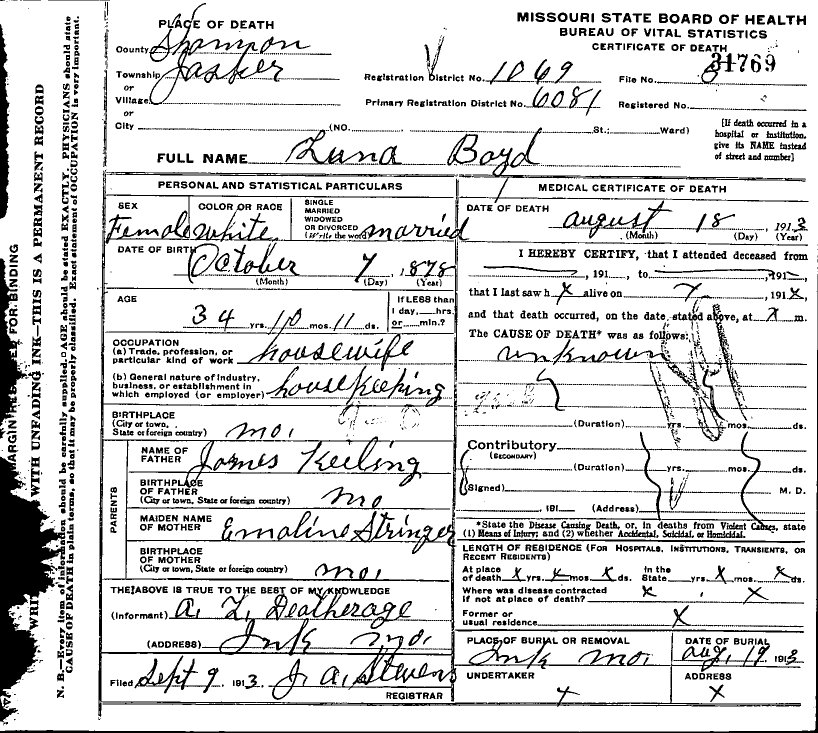 MISSOURI STATE BOARD OF HEALTH
BUREAU OF VITAL STATISTICS
CERTIFICATE OF DEATH
PLACE OF DEATH
County Shannon
Township Jasper
or
Village
or
City (NO. St.; Ward)
Registration District No. 1069
File No. 31769
Primary Registration District No. 6081
Registered No.
[If death occurred in a
hospital or institution,
give its NAME instead
of street and number]
FULL NAME Luna Boyd
PERSONAL AND STATISTICAL PARTICULARS
SEX
Female
COLOR OR RACE
white
SINGLE
MARRIED
WIDOWED
OR DIVORCED
(Write the word)
married
DATE OF BIRTH
October 7, 1878
(Month) (Day) (Year)
AGE
34 yrs. 10 mos. 11 ds.
If LESS than
1 day, hrs.
or min.?
OCCUPATION
(a) Trade, profession, or
particular kind of work housewife
(b) General nature of industry,
business, or establishment in
which employed (or employer) housekeeping
BIRTHPLACE
(City or town,
State or foreign country) mo.
PARENTS
NAME OF
FATHER James Keeling
BIRTHPLACE
OF FATHER
(City or town, State or foreign country) mo
MAIDEN NAME
OF MOTHER Emaline Stringer
BIRTHPLACE
OF MOTHER
(City or town, State or foreign country) mo.
THE ABOVE IS TRUE TO THE BEST OF MY KNOWLEDGE
(Informant) A. L. Deatherage
(ADDRESS) Ink mo.
Filed Sept 9 1913. J. A. Stevens
REGISTRAR
MEDICAL CERTIFICATE OF DEATH
DATE OF DEATH
august 18, 1913
(Month) (Day) (Year)
I HEREBY CERTIFY, that I attended deceased from
, 191 , to , 191 ,
that I last saw h X alive on , 191X,
and that death occurred, on the date stated above, at X m.
The CAUSE OF DEATH* was as follows:
unknown
(Duration) yrs. mos. ds.
Contributory
(SECONDARY)
(Duration) yrs. mos. ds.
(Signed) M. D.
, 191 . (Address)
*State the Disease Causing Death, or, in deaths from Violent Causes, state
(1) Means of Injury; and (2) whether Accidental, Suicidal, or Homicidal.
LENGTH OF RESIDENCE (FOR HOSPITALS, INSTITUTIONS, TRANSIENTS, OR
RECENT RESIDENTS)
At place
of death X yrs. X mos. X ds.
In the
State yrs. X mos. X ds.
Where was disease contracted
if not at place of death? X X
Former or
usual residence X
PLACE OF BURIAL OR REMOVAL
Ink mo.
DATE OF BURIAL
aug. 19 1913
UNDERTAKER
X
ADDRESS
X
MARGIN RESERVED FOR BINDING
WRITE WITH UNFADING INK—THIS IS A PERMANENT RECORD
N. B.—Every item of information should be carefully supplied. AGE should be stated EXACTLY. PHYSICIANS should state
CAUSE OF DEATH in plain terms, so that it may be properly classified. Exact statement of OCCUPATION is very important.